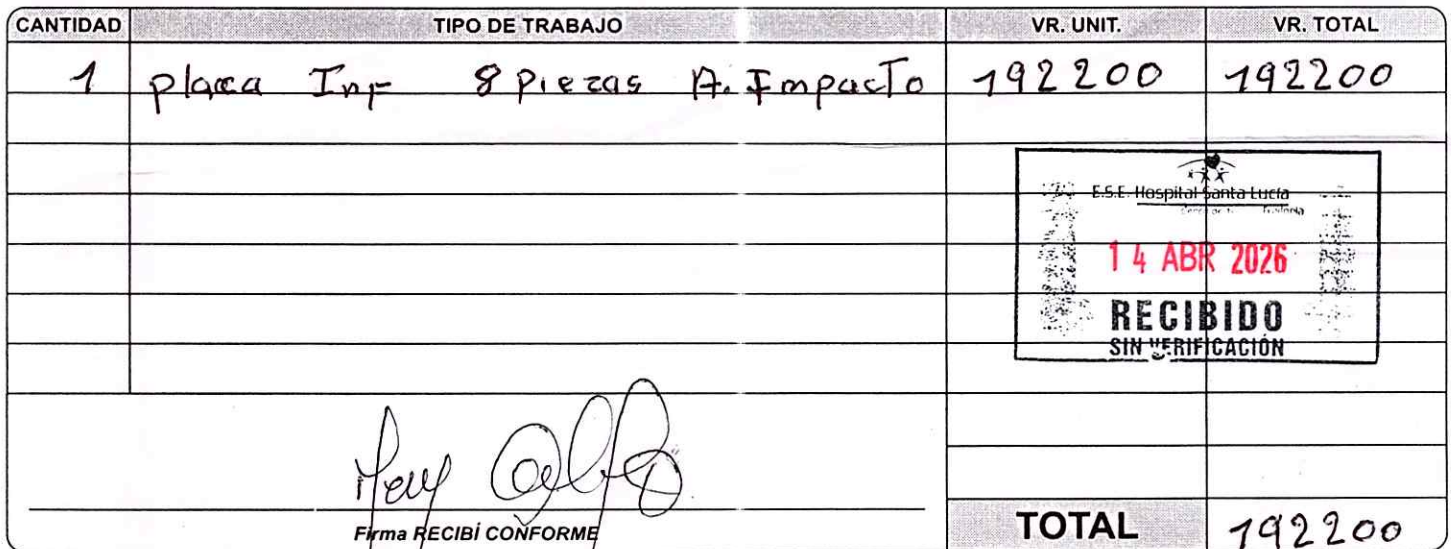 CANTIDAD TIPO DE TRABAJO VR. UNIT. VR. TOTAL
1 placa Inf 8 Piezas A. Impacto 192200 192200
E.S.E. Hospital Santa Lucía
14 ABR 2026
RECIBIDO
SIN VERIFICACIÓN
Firma RECIBÍ CONFORME
TOTAL 192200